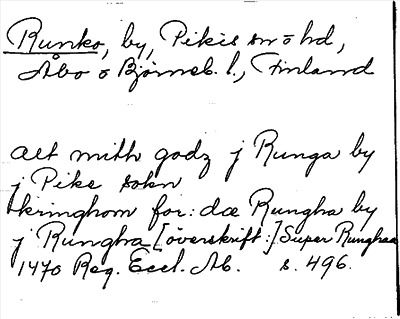 Runko, by, Pikis sn o hd,
Åbo o Björneb. l., Finland
alt mith godz j Runga by
j Pike sokn
kringhom for: dæ Rungha by
j Rungha [överskrift:] Super Runghaa
1470 Reg. Eccl. Ab. s. 496.